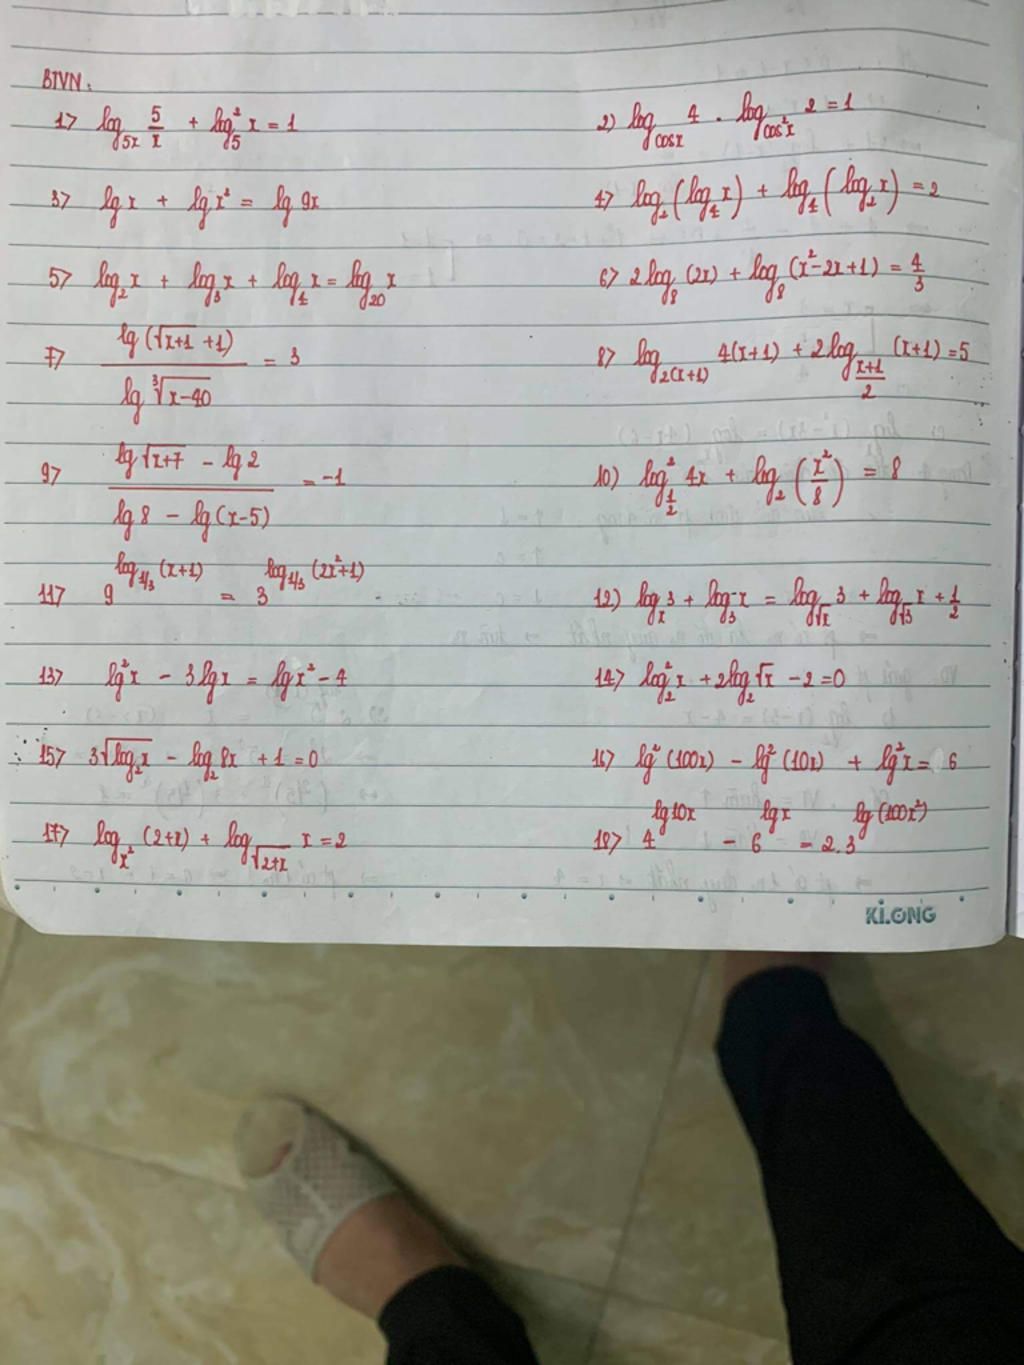 BTVN:
1> log_{5x} 5/x + log_5^2 x = 1
2) log_{cosx} 4 . log_{cos^2x} 2 = 1
3> lg x + lg x^2 = lg 9x
4> log_2 (log_4 x) + log_4 (log_2 x) = 2
5> log_2 x + log_3 x + log_4 x = log_{20} x
6> 2log_8 (2x) + log_8 (x^2-2x+1) = 4/3
7> lg(√(x+1) +1) / lg ∛(x-40) = 3
8> log_{2(x+1)} 4(x+1) + 2log_{(x+1)/2} (x+1) = 5
9> (lg√(x+7) - lg 2) / (lg 8 - lg(x-5)) = -1
10) log_{1/2}^2 4x + log_2 (x^2/8) = 8
11> 9^{log_{1/3}(x+1)} = 3^{log_{1/3}(2x^2+1)}
12) log_x 3 + log_3 x = log_{√x} 3 + log_{√3} x + 1/2
13> lg^2 x - 3lg x = lg x^2 - 4
14> log_2^2 x + 2log_2 √x - 2 = 0
15> 3√(log_2 x) - log_2 8x + 1 = 0
16> lg^2 (100x) - lg^2 (10x) + lg^2 x = 6
17> log_{x^2} (2+x) + log_{√(2+x)} x = 2
18> 4^{lg10x} - 6^{lg x} = 2.3^{lg(100x^2)}
KLONG